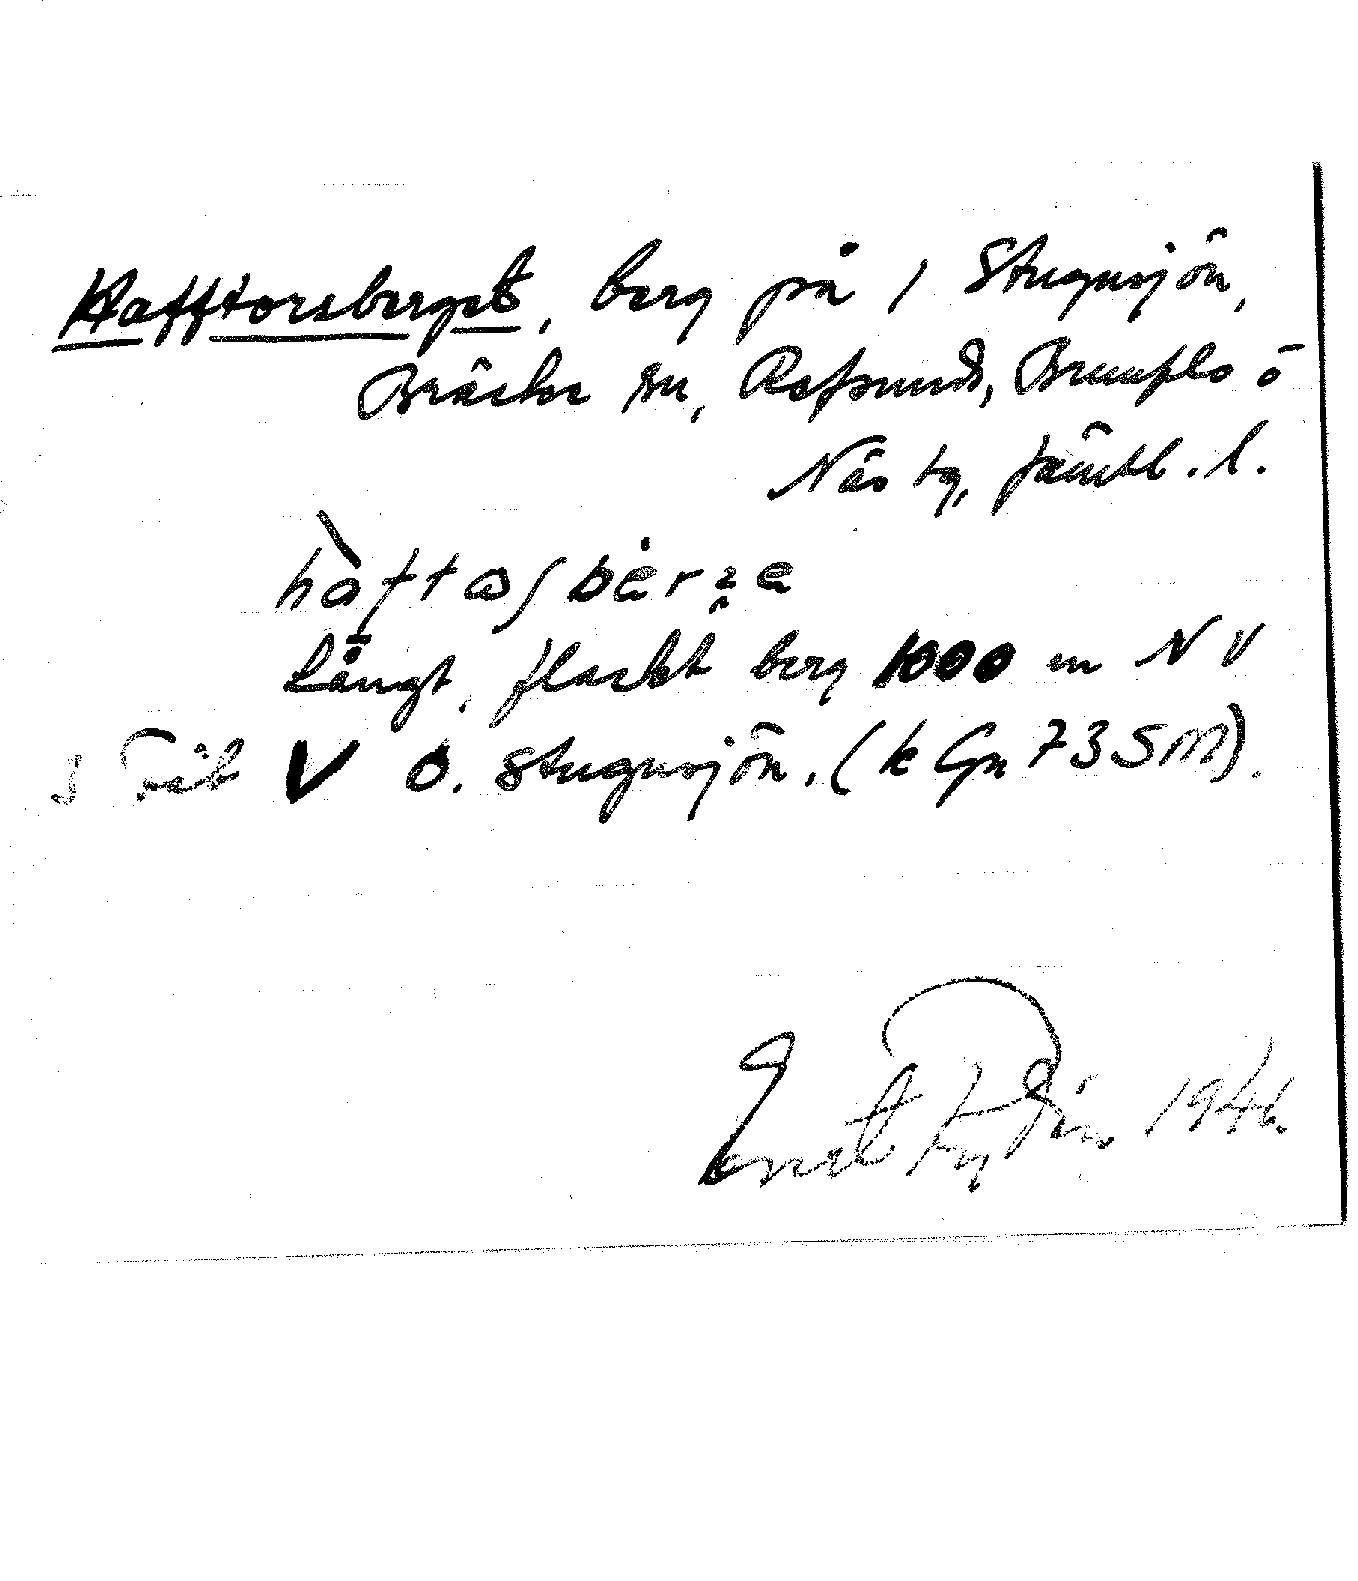 Hafftorsberget, berg på 1 Stugusjön,
Bräcke sn, Refsunds, Brunflo o
Näs tg, Jämtl. l.
hàftasbèrʒe
Långt, flackt berg 1000 m NV
V Ö. Stugusjön. (k Gn 73 SM).
Ernst 1946.